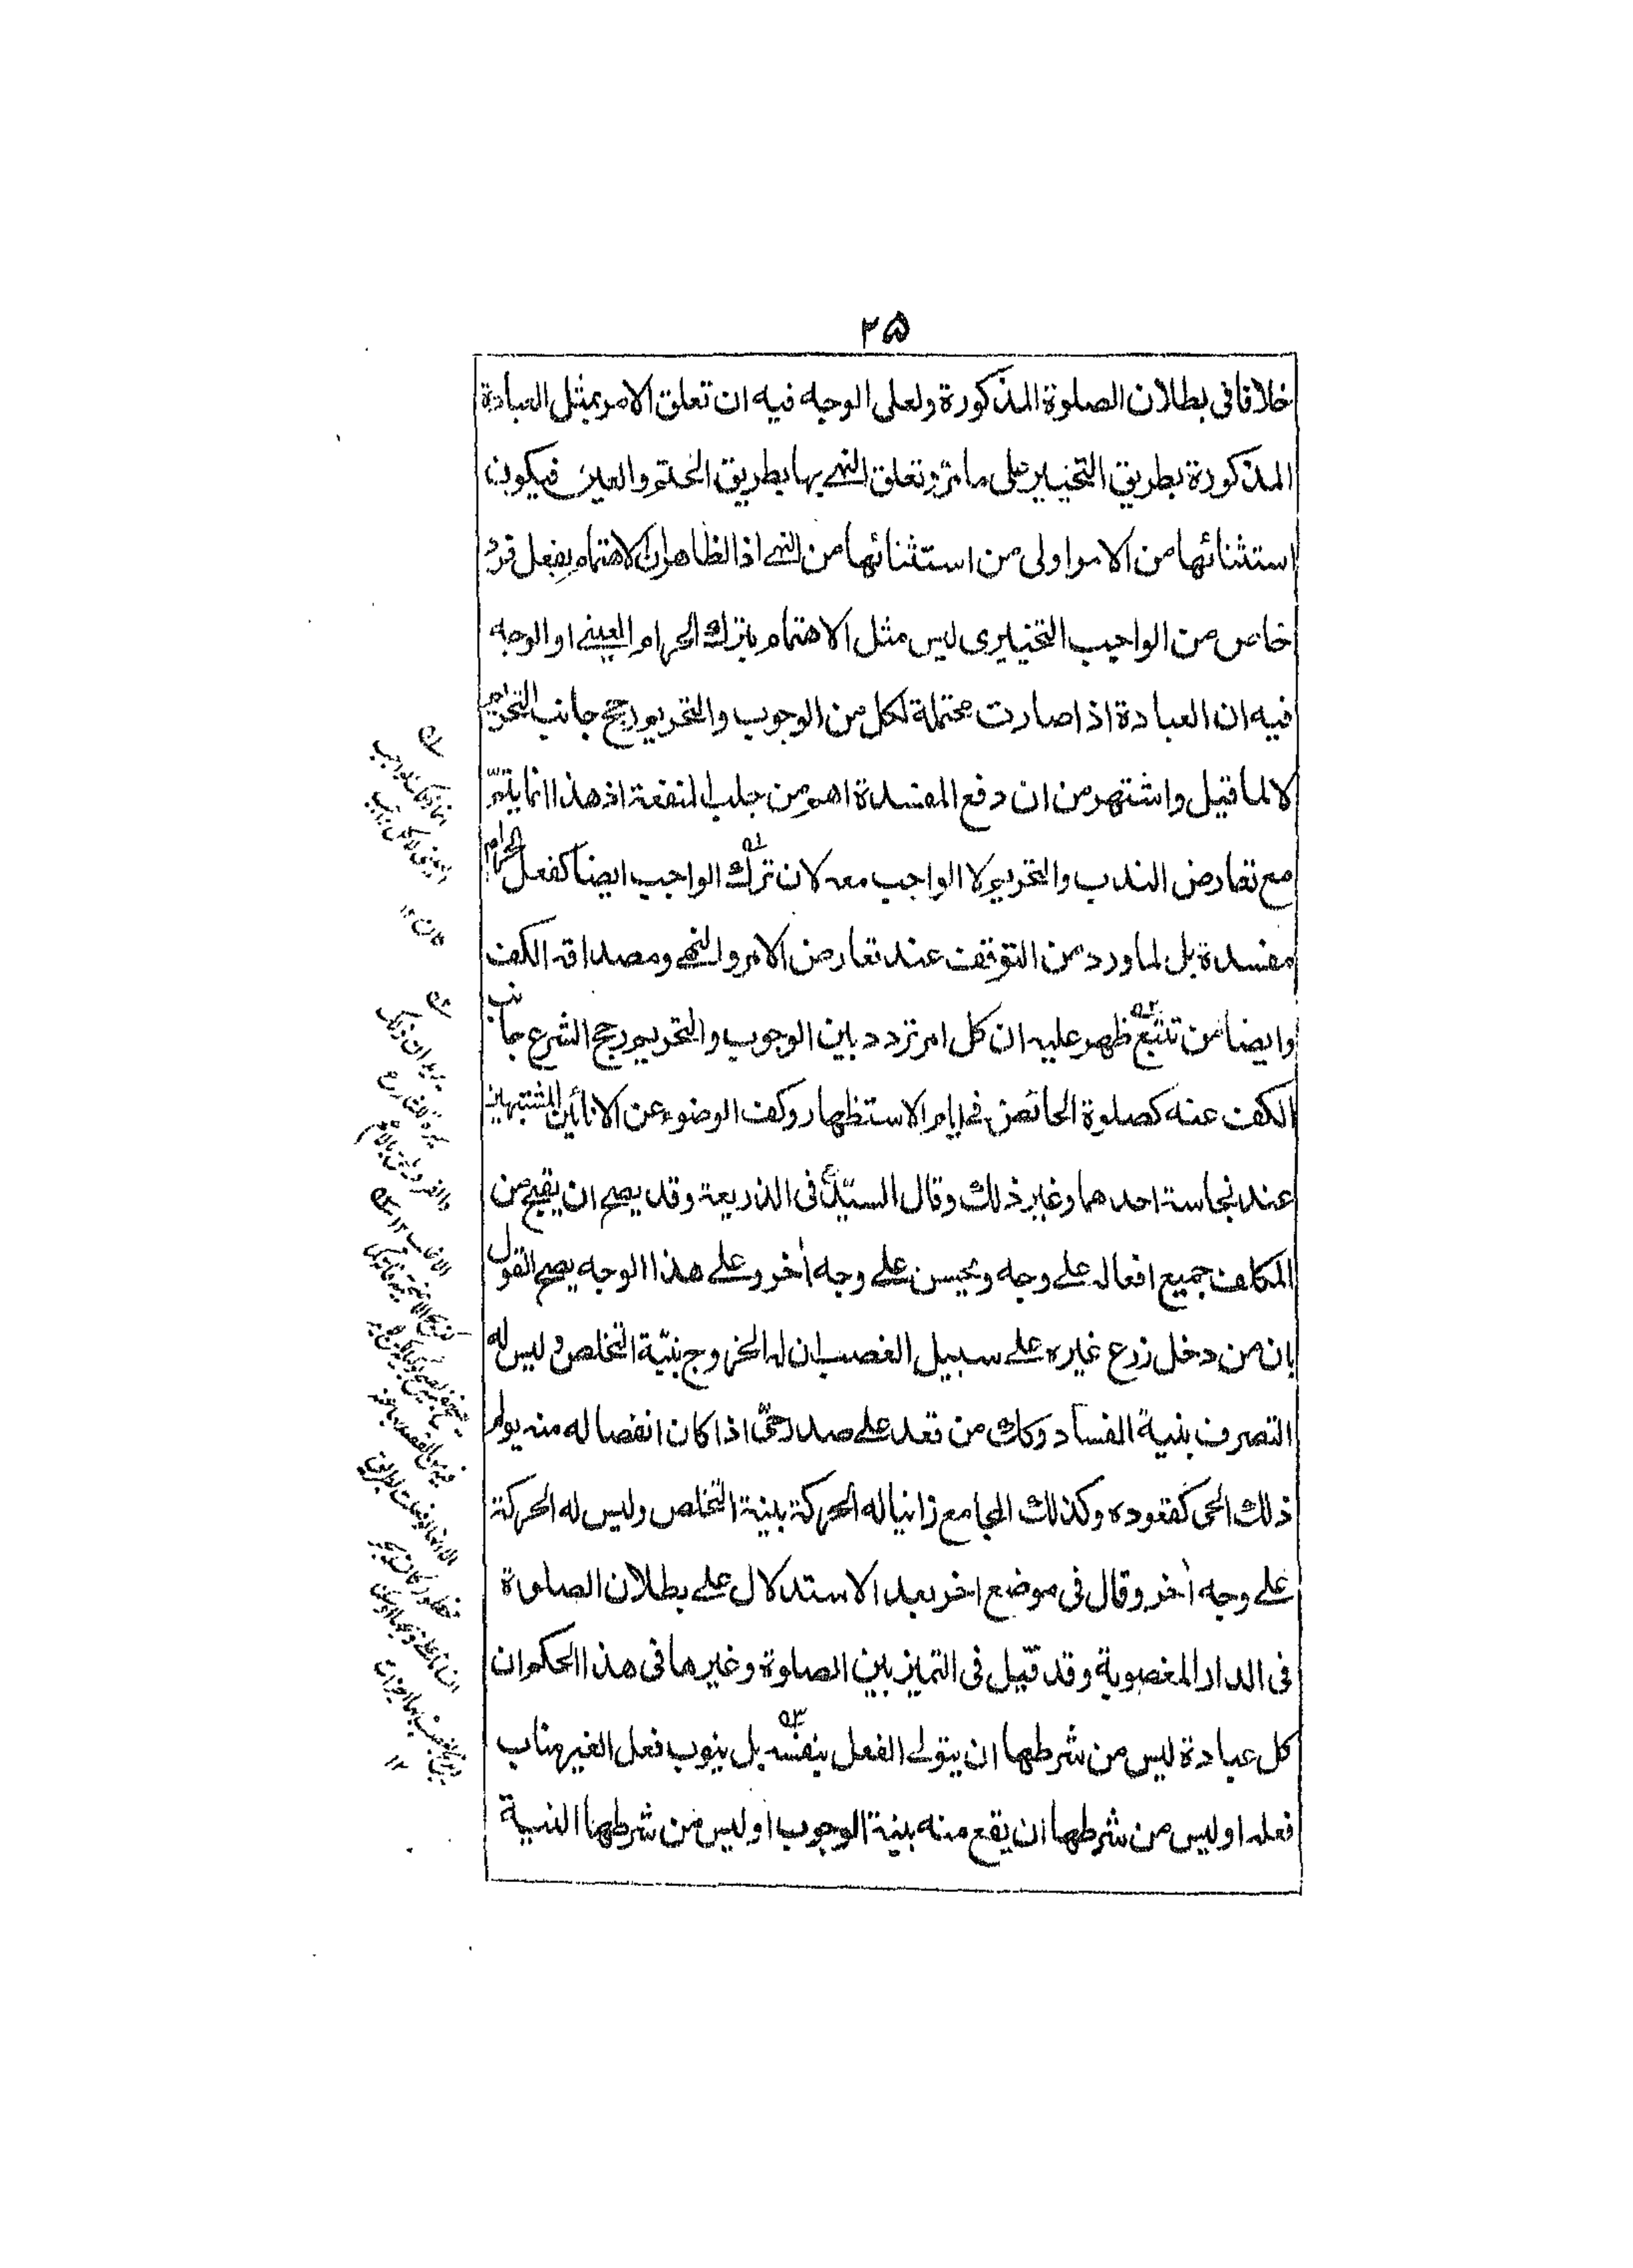 ٢۵
خلافا فى بطلان الصلوة المذكورة ولعلى الوجه فيه ان تعلق الامر بمثل العبادة
المذكورة بطريق التخيير على ما مرّ وتعلق النهے بها بطريق الحتم والعين فيكون
استثنائها من الامر اولى من استثنائها من النهے اذ الظاهر ان الاهتمام بفعل فرد
خاص من الواجب التخييرى ليس مثل الاهتمام بترك الحرام العينے او الوجه
فيه ان العبادة اذا صارت محتملة لكل من الوجوب والتحريم رجح جانب التحريم
لا لما قيل واشتهر من ان دفع المفسدة اهم من جلب المنفعة اذ هذا انما يتمّ
مع تعارض الندب والتحريم لا الواجب معه لان ترك الواجب ايضا كفعل الحرام
مفسدة بل لما ورد من التوقف عند تعارض الامر والنهے ومصداقه الكف
وايضا من تتبع ظهر عليه ان كل امر تردد بين الوجوب والتحريم رجح الشرع جانب
الكف عنه كصلوة الحائض فے ايام الاستظهار وكف الوضوء عن الانائين المشتبهين
عند نجاسة احدهما وغير ذلك وقال السيّد فى الذريعة وقد يصح ان يقبح من
المكلف جميع افعاله علے وجه ويحسن علے وجه أخر وعلے هذا الوجه يصح القول
بان من دخل زرع غيره علے سبيل الغصب ان له الخروج بنيّة التخلص وليس له
التصرف بنية الفساد وكك من قعد علے صدر حىّ اذا كان انفصاله منه يولم
ذلك الحى كقعوده وكذلك المجامع زانيا له الحركة بنية التخلص وليس له الحركة
علے وجه أخر وقال فى موضع اخر بعد الاستدلال علے بطلان الصلوة
فى الدار المغصوبة وقد قيل فى التميز بين الصلوة وغيرها فى هذا الحكم ان
كل عبادة ليس من شرطها ان يتولے الفعل بنفسه بل ينوب فعل الغير مناب
فعله او ليس من شرطها ان يقع منه بنية الوجوب او ليس من شرطها النية